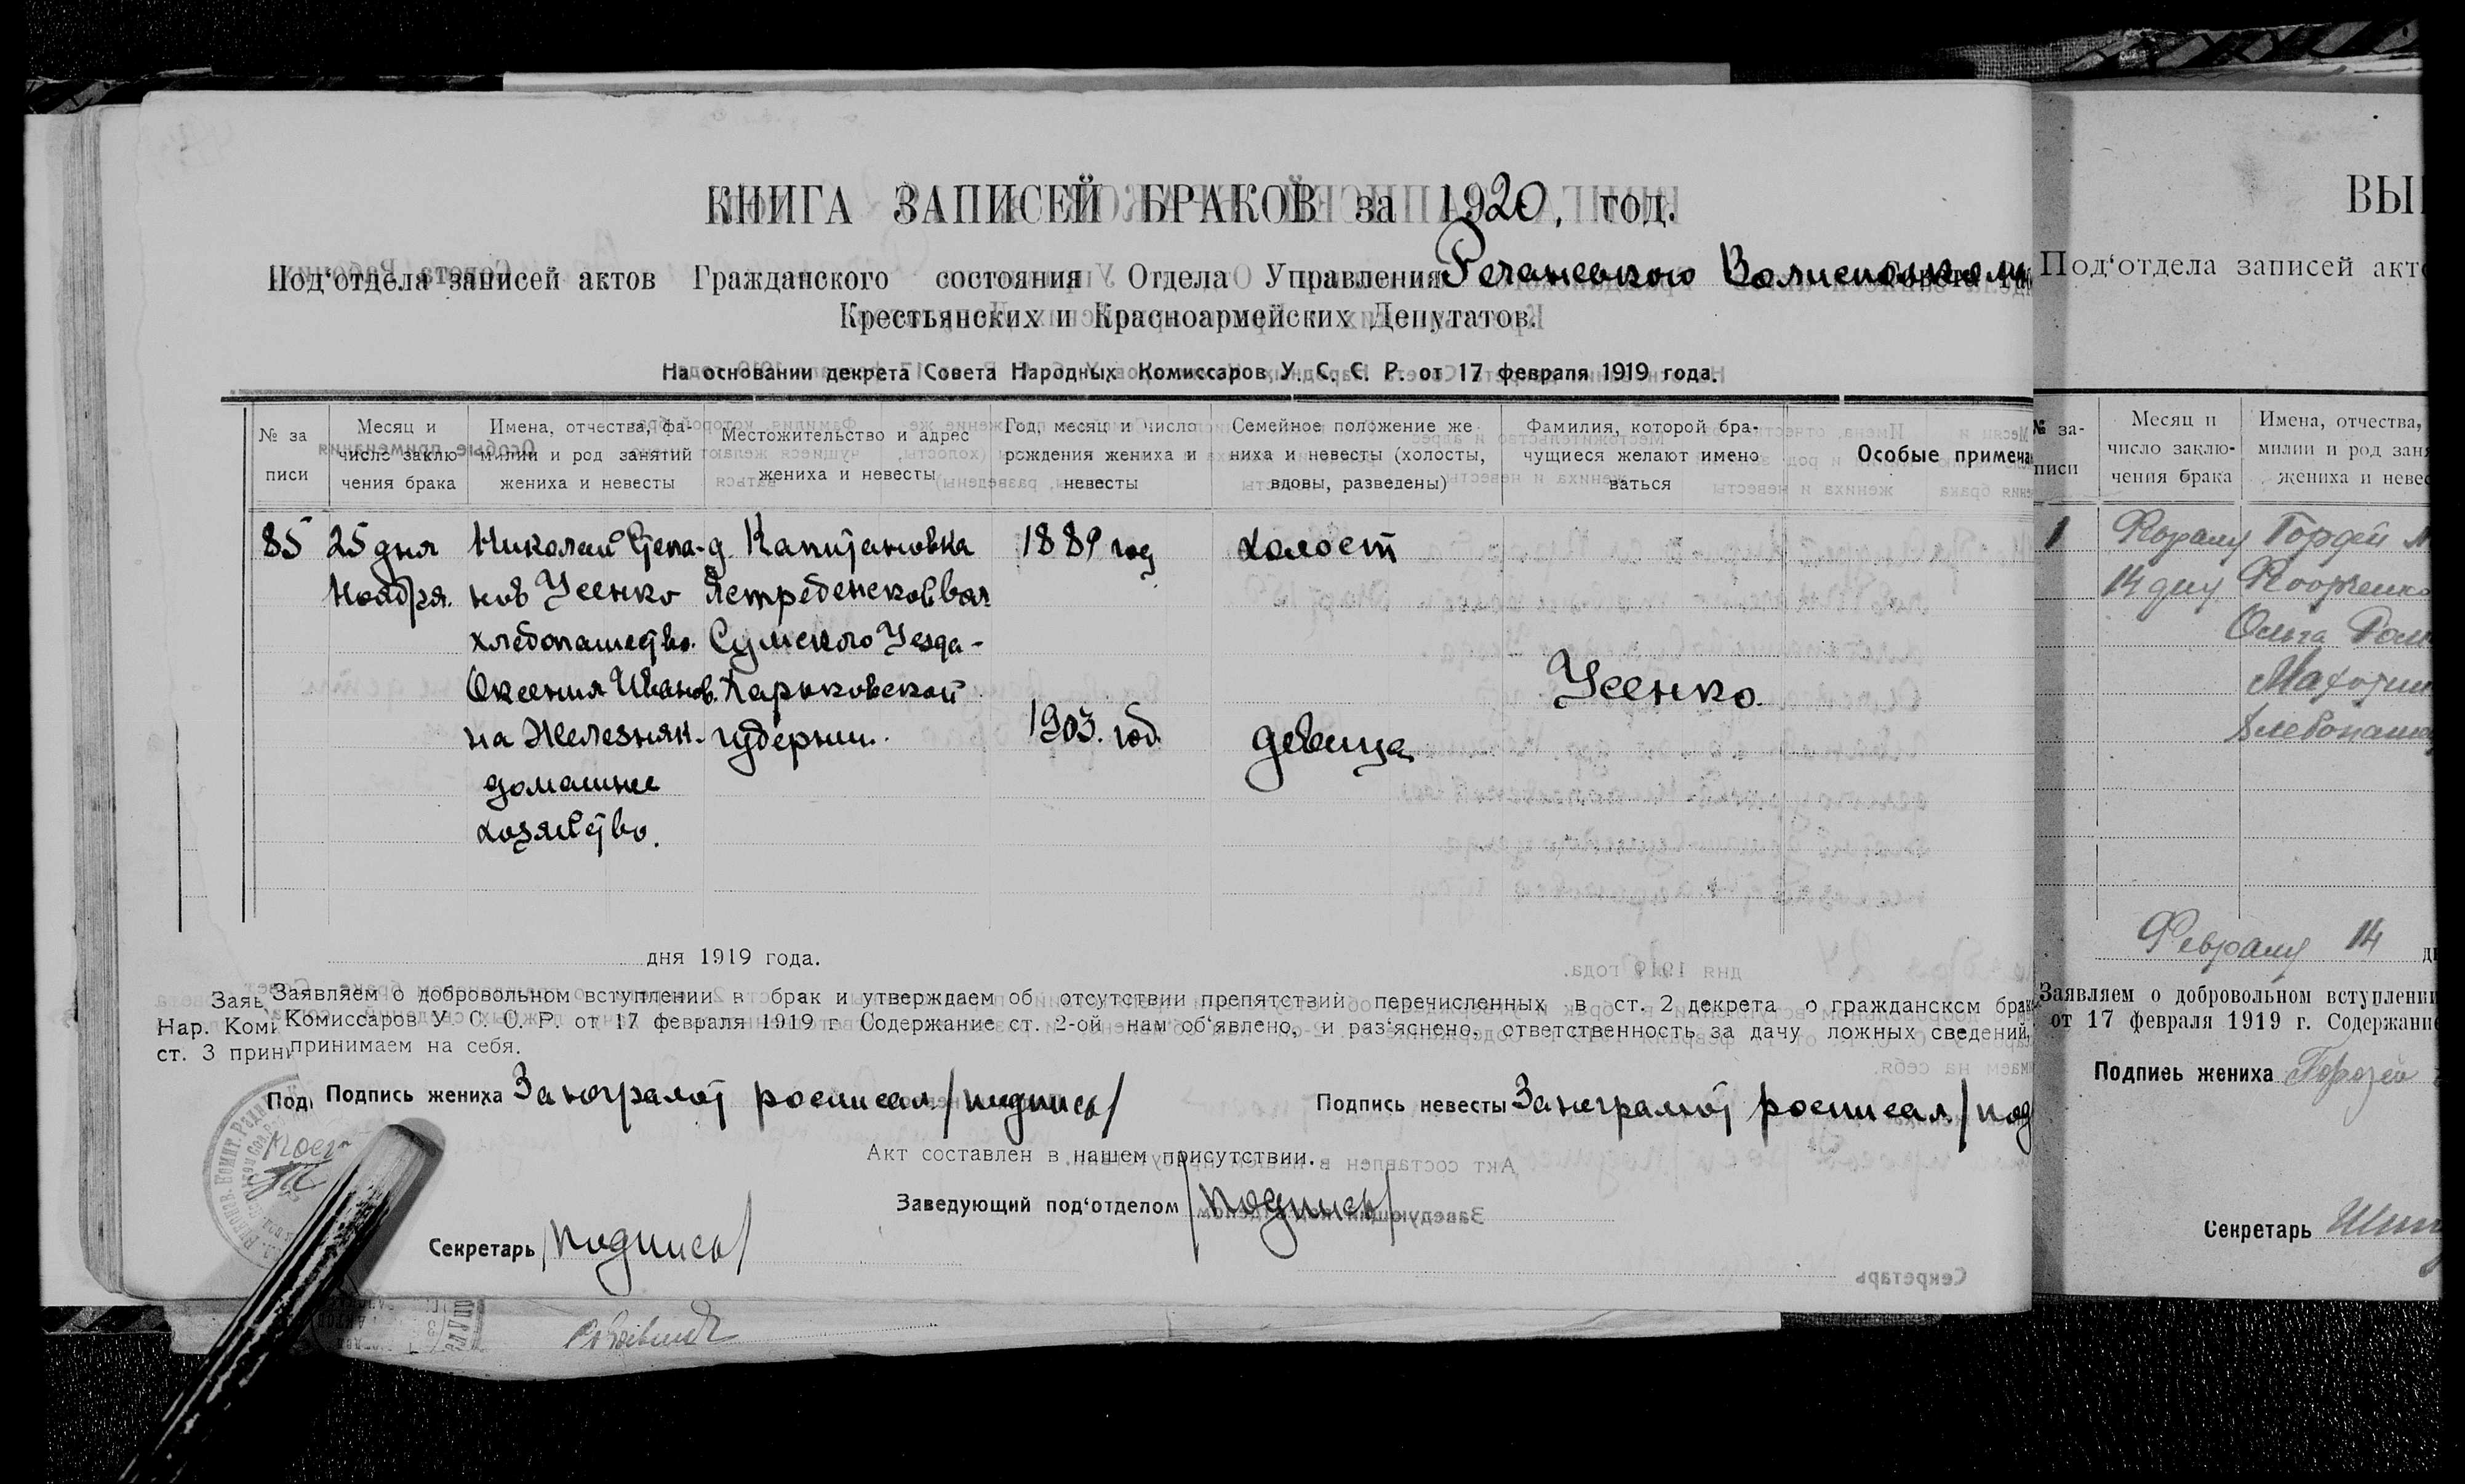 КНИГА ЗАПИСЕЙ БРАКОВ за 1920, год.
Под‘отдела записей актов Гражданского состояния Отдела Управления
Крестьянских и Красноармейских Депутатов.
На основании декрета Совета Народных Комиссаров У. С. С. Р. от 17 февраля 1919 года.
№ за
писи
Месяц и
число заклю
чения брака
Имена, отчества, фа-
милии и род занятий
жениха и невесты
Местожительство и адрес
жениха и невесты
Год, месяц и число
рождения жениха и
невесты
Семейное положение же
ниха и невесты (холосты,
вдовы, разведены)
Фамилия, которой бра-
чущиеся желают имено
ваться
Особые примеча
85
25 дня
Ноября.
Николай Степа-
нов Усенко
хлебопашество.
Оксения Иванов.
на Железняк.
домашнее
хозяйство.
д. Капитановка
Ястребенской вол
Сумского Уезда-
Харьковской
губернии.
1889 год
1903. год.
холост
девица
Усенко.
дня 1919 года.
Заявляем о добровольном вступлении в брак и утверждаем об отсутствии препятствий перечисленных в ст. 2 декрета о гражданском брак
Комиссаров У С. С. Р. от 17 февраля 1919 г Содержание ст. 2-ой нам об‘явлено, и раз‘яснено, ответственность за дачу ложных сведений,
принимаем на себя.
Заяв
Нар. Коми
ст. 3 прини
Под
Подпись жениха За неграмот росписал /подпись/
Подпись невесты За неграмот росписал /под
Акт составлен в нашем присутствии.
Заведующий под‘отделом /подпись/
Секретарь /подпись/
ВЫ
Под‘отдела записей акт
№ за-
писи
Месяц и
число заклю-
чения брака
Имена, отчества,
милии и род заня
жениха и невес
1
14 дня
Гордей
Ольга
Февраля 14
Заявляем о добровольном вступлении
от 17 февраля 1919 г. Содержание
Подпись жениха
Секретарь